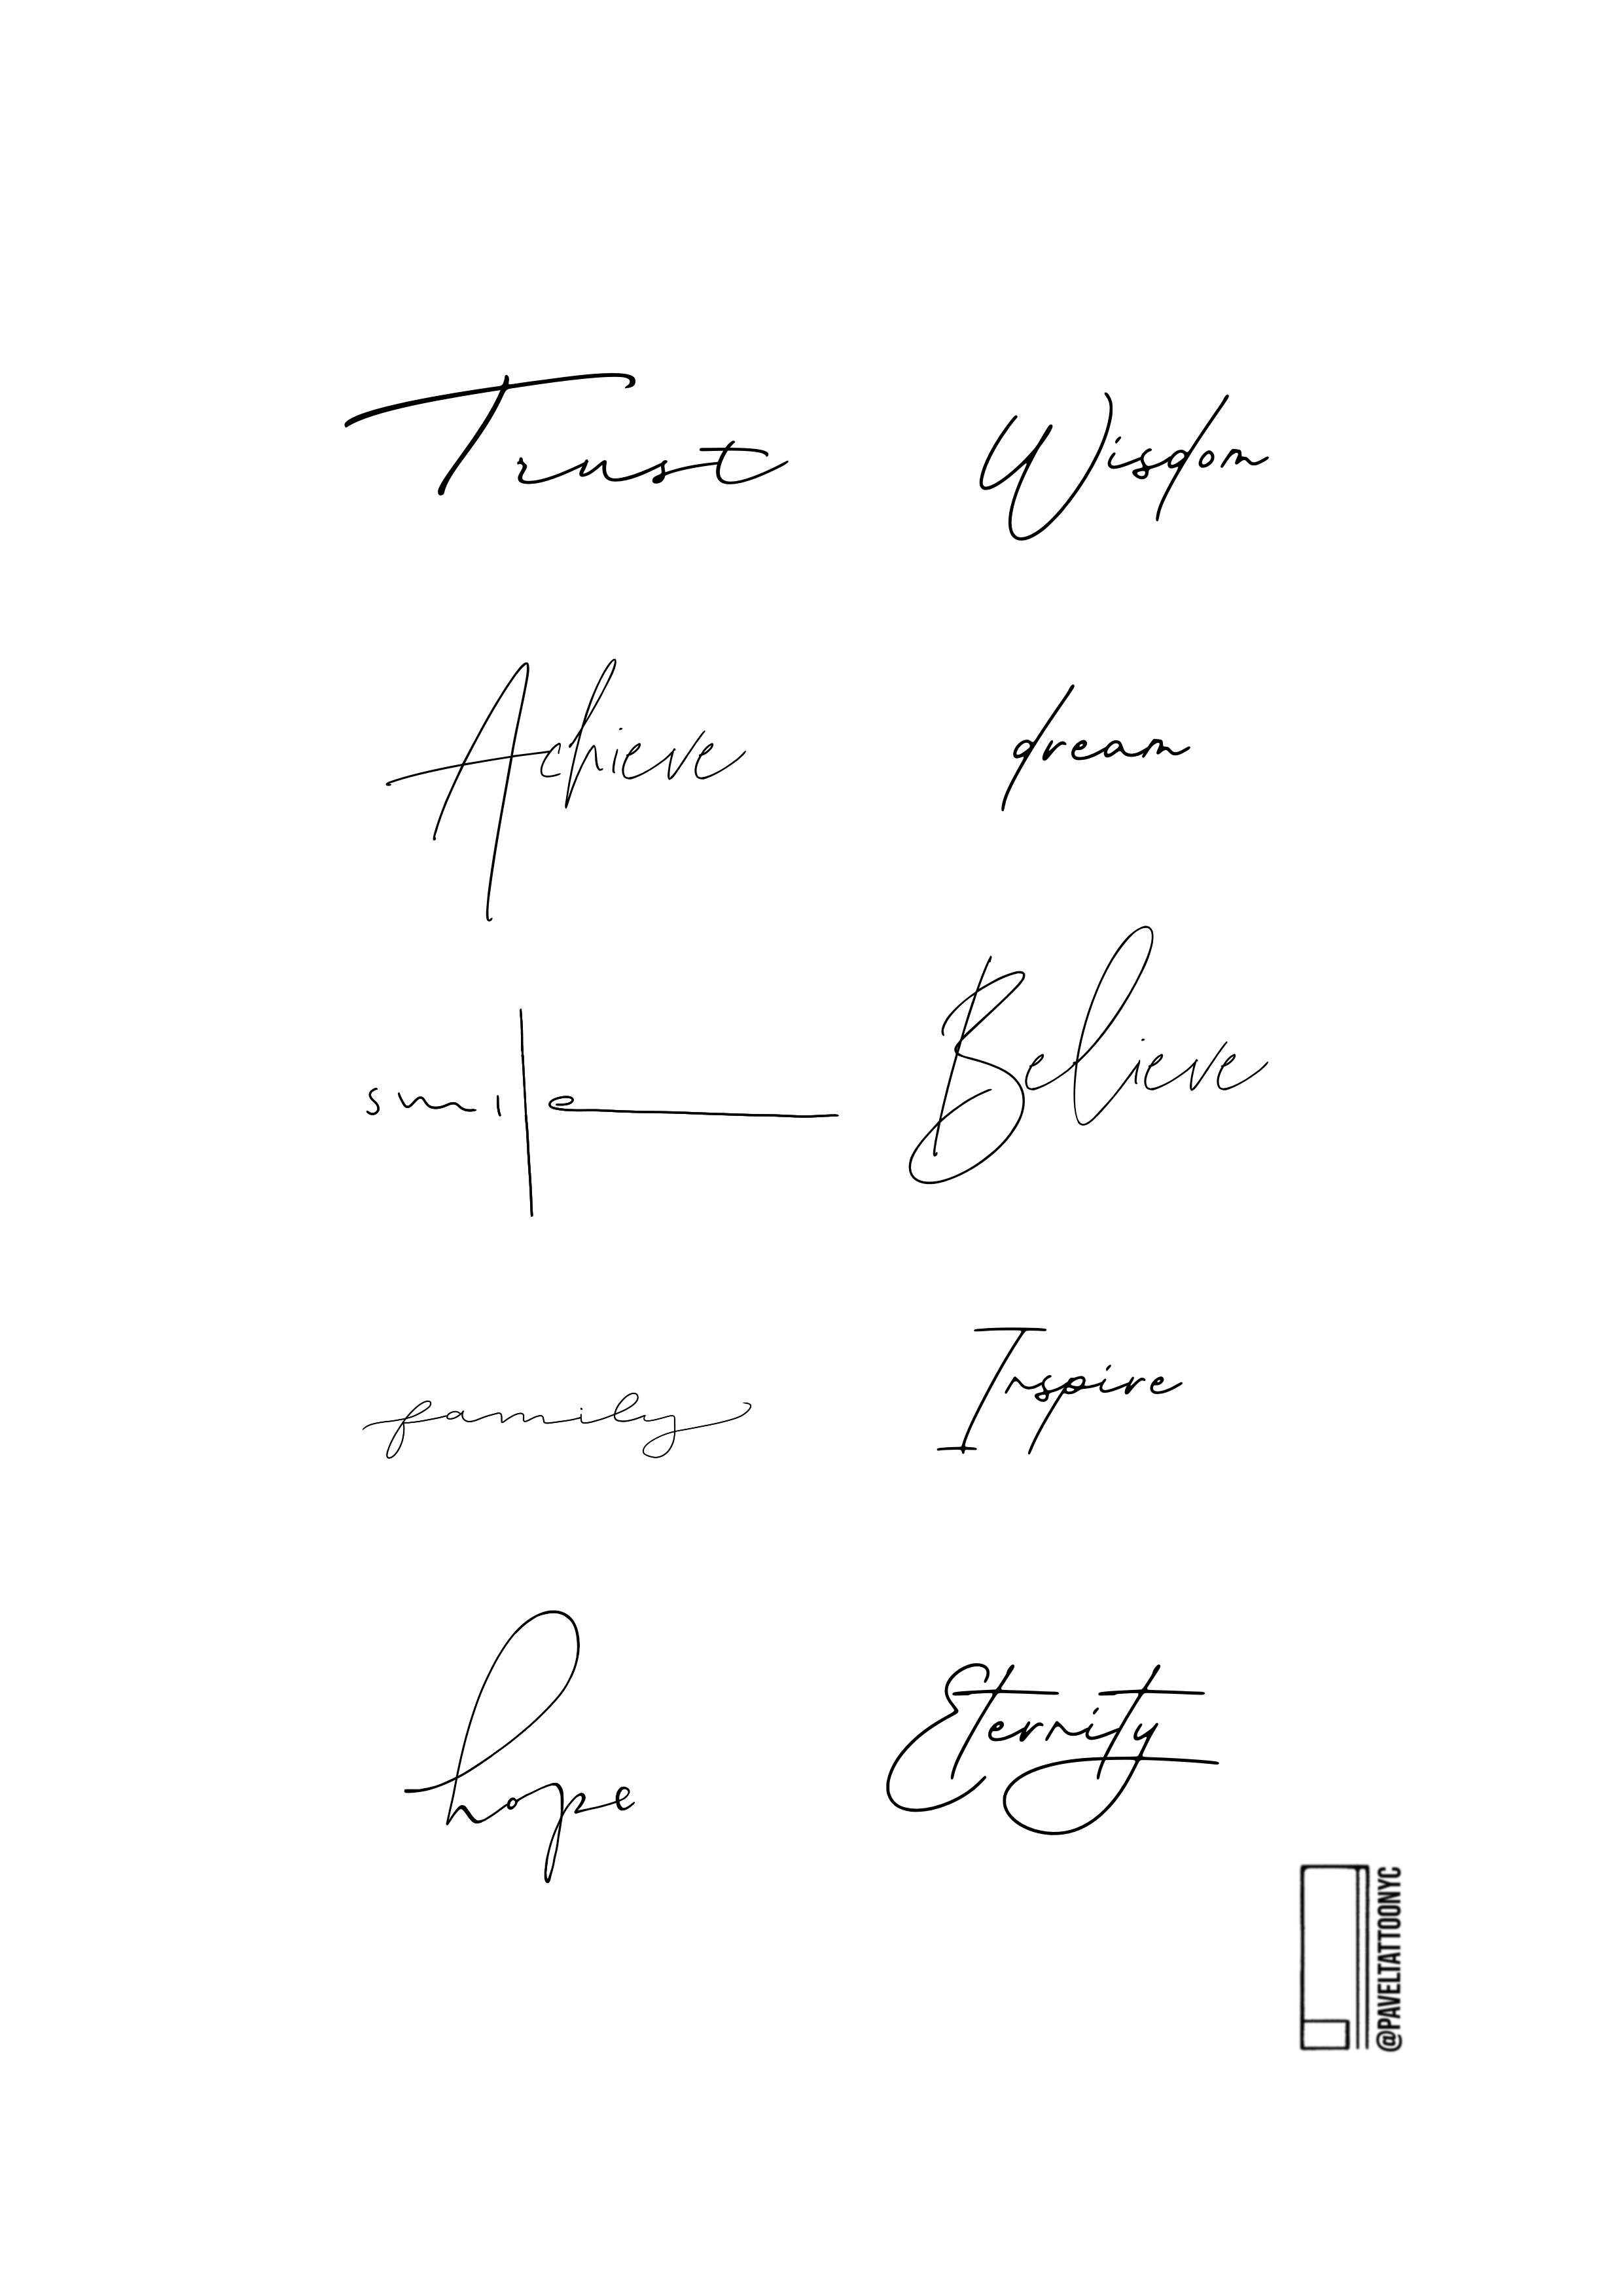 Trust
Wisdom
Achieve
dream
smile
Believe
family
Inspire
hope
Eternity
@PAVELTATTOONYC